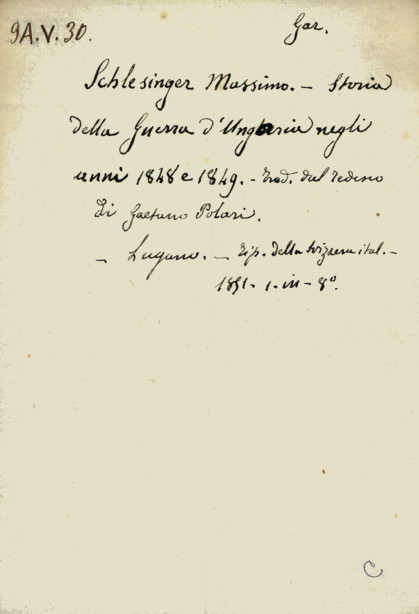 9A.V.30.
Gar.
Schlesinger Massimo. - Storia
della Guerra d'Ungaria negli
anni 1848 e 1849. - Trad. dal tedesco
di Gaetano Polari.
- Lugano. - Tip. della Svizzera ital. -
1851 - 1. in - 8º.
C